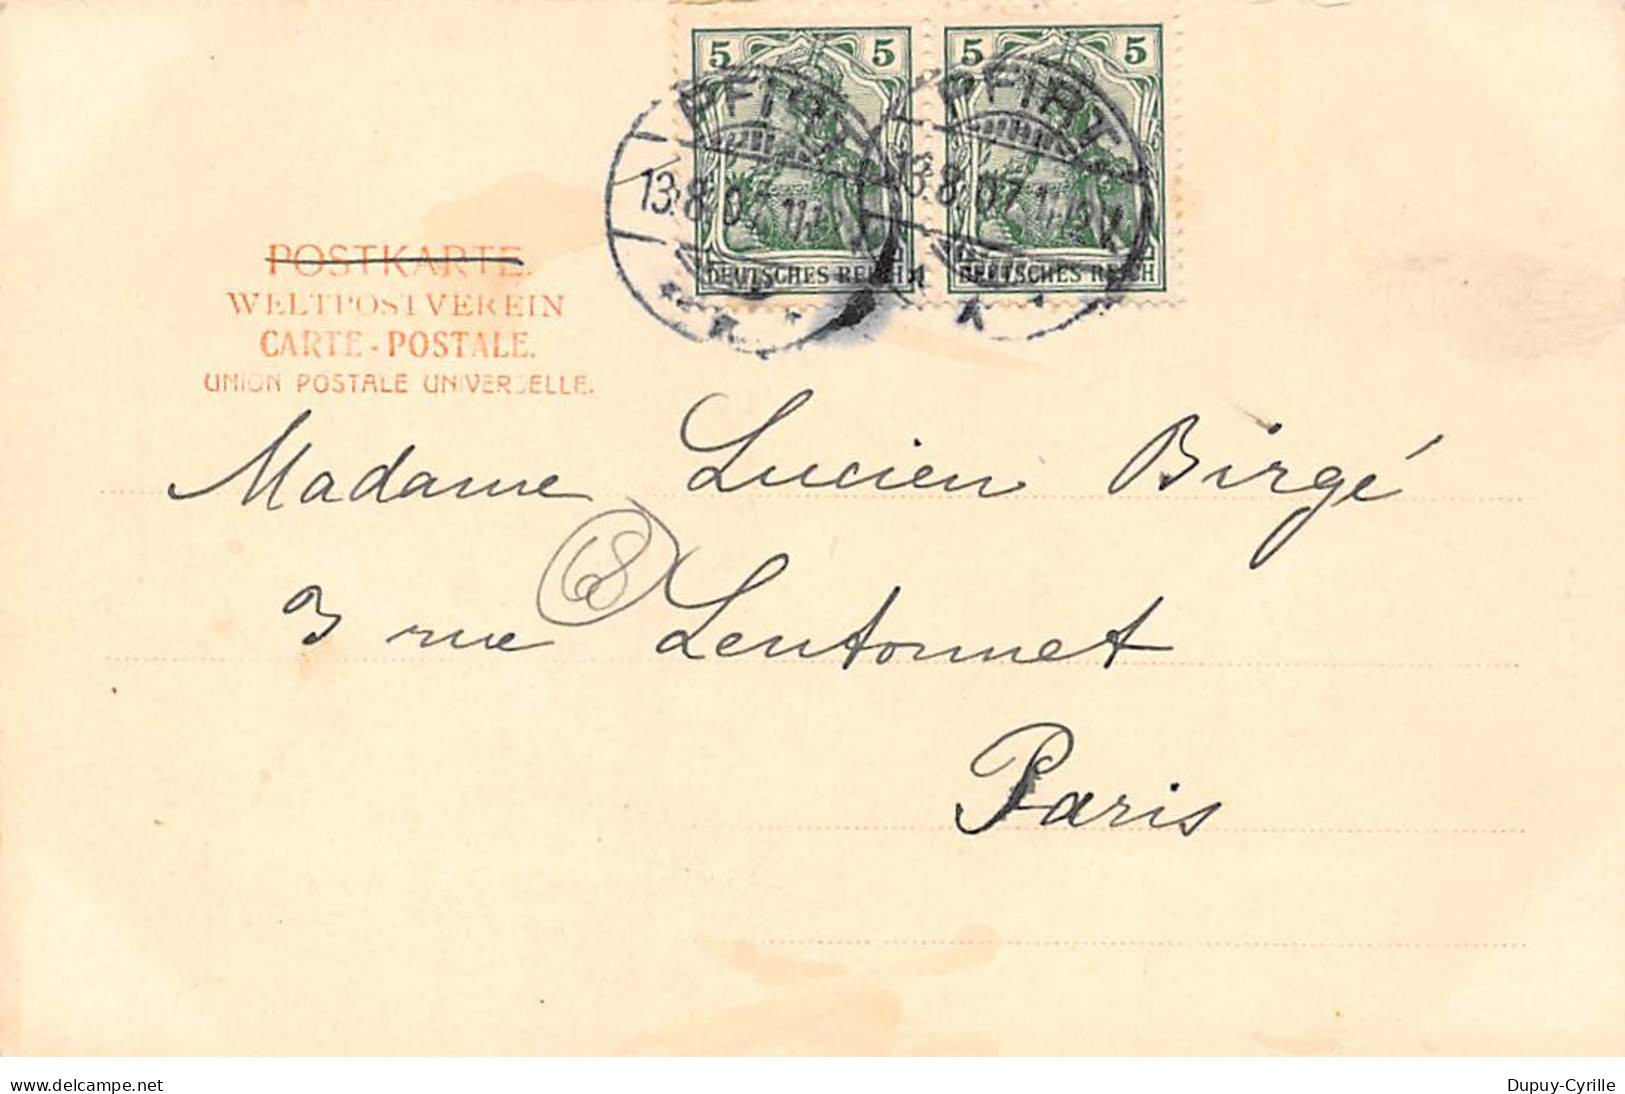 5 5 5 5
PFIRT PFIRT
13.8.07 13.8.07 11-12V
DEUTSCHES REICH DEUTSCHES REICH
POSTKARTE.
WELTPOSTVEREIN
CARTE-POSTALE.
UNION POSTALE UNIVERSELLE.
Madame Lucien Birgé
68
3 rue Lentonnet
Paris
www.delcampe.net Dupuy-Cyrille